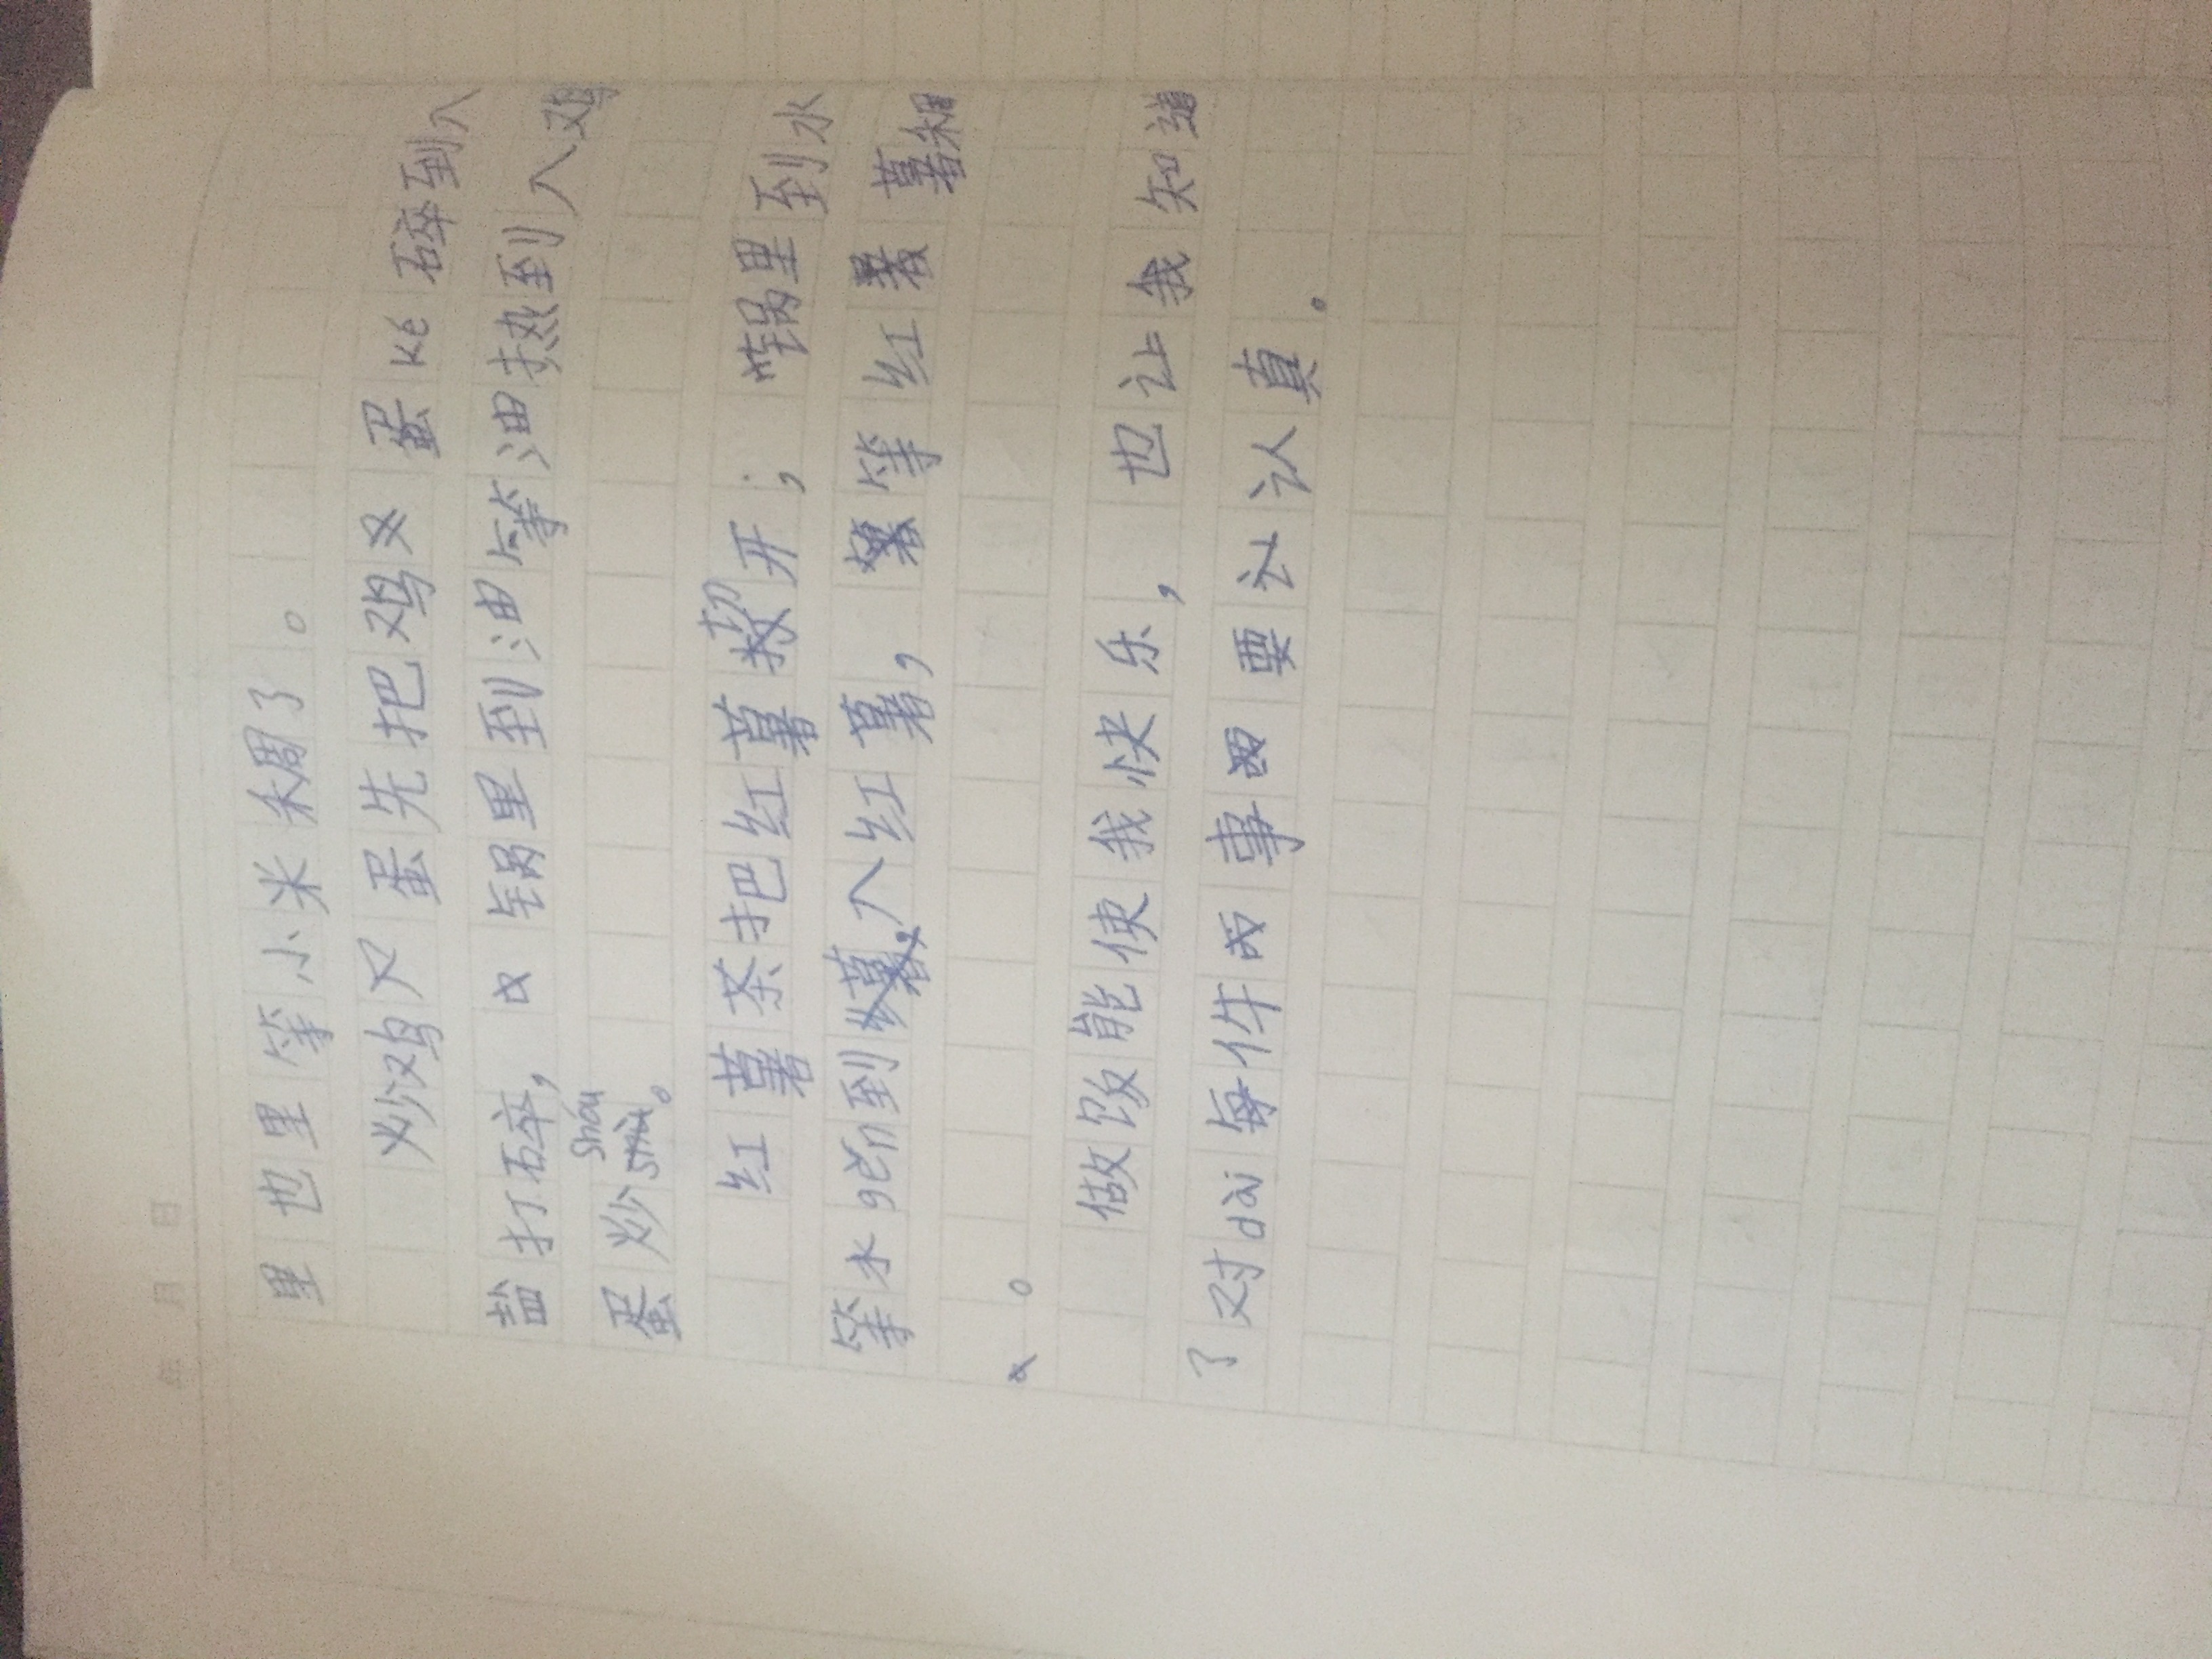 年 月 日
里也里等小米稠了。
炒鸡蛋先把鸡蛋ké碎到入
盐打碎,锅里到油等油热到入鸡
蛋炒shóu。
红薯茶把红薯切开;锅里到水
等水gěn到入红薯,等红薯
。
做饭能使我快乐,也让我知道
了对dài每件事要认真。